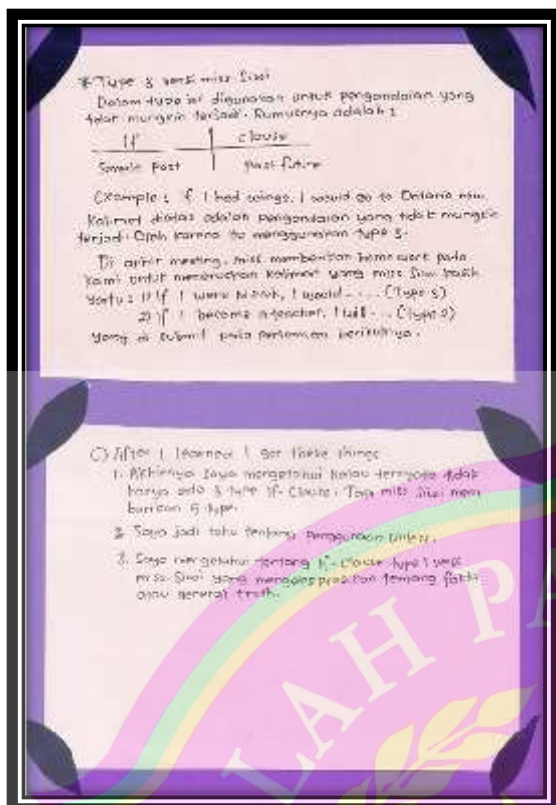 * Type 3 versi miss Siwi
Dalam type ini digunakan untuk pengandaian yang
tidak mungkin terjadi. Rumusnya adalah :
If clause
Simple Past past future
Example : If I had wings, I would go to Ontario now.
Kalimat diatas adalah pengandaian yang tidak mungkin
terjadi. Oleh karena itu menggunakan type 3.
Di akhir meeting, miss memberikan homework pada
kami untuk meneruskan kalimat yang miss Siwi kasih
yaitu : 1) If I were , I would .... (Type 3)
2) If I become a teacher, I will ... (Type 2)
yang di submit pada pertemuan berikutnya.
C) After I learned I got these things
1. Akhirnya saya mengetahui kalau ternyata tidak
hanya ada 3 type If-Clause. Tapi miss Siwi mem
berikan 5 type.
2. Saya jadi tahu tentang penggunaan Unless.
3. Saya mengetahui tentang If-Clause type 1 versi
miss Siwi yang mengekspresikan tentang fakta
atau general truth.
LAH PA